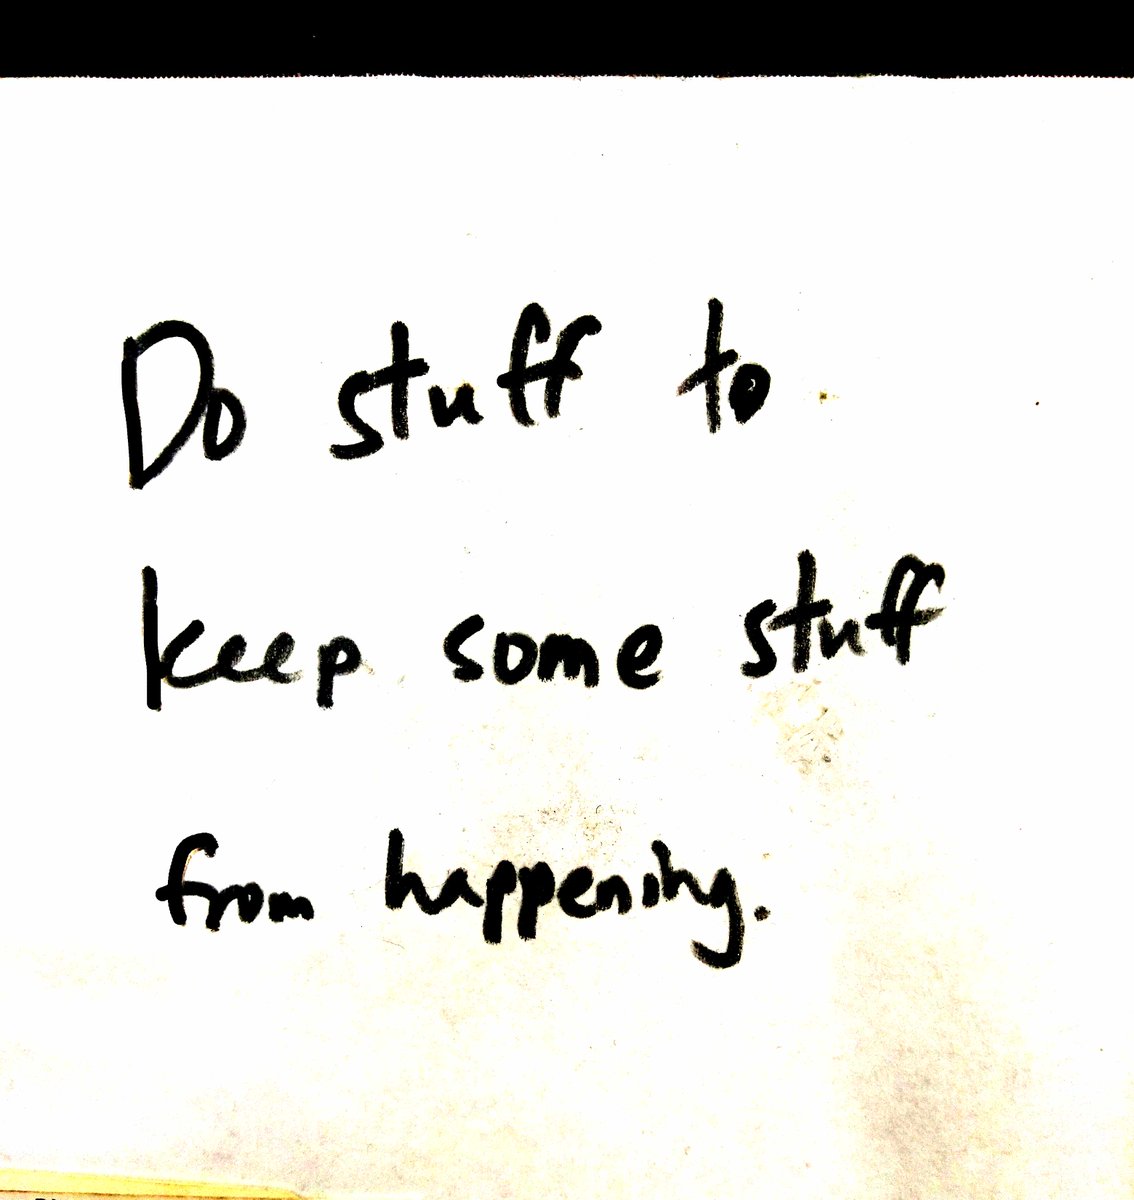 Do stuff to
keep some stuff
from happening.